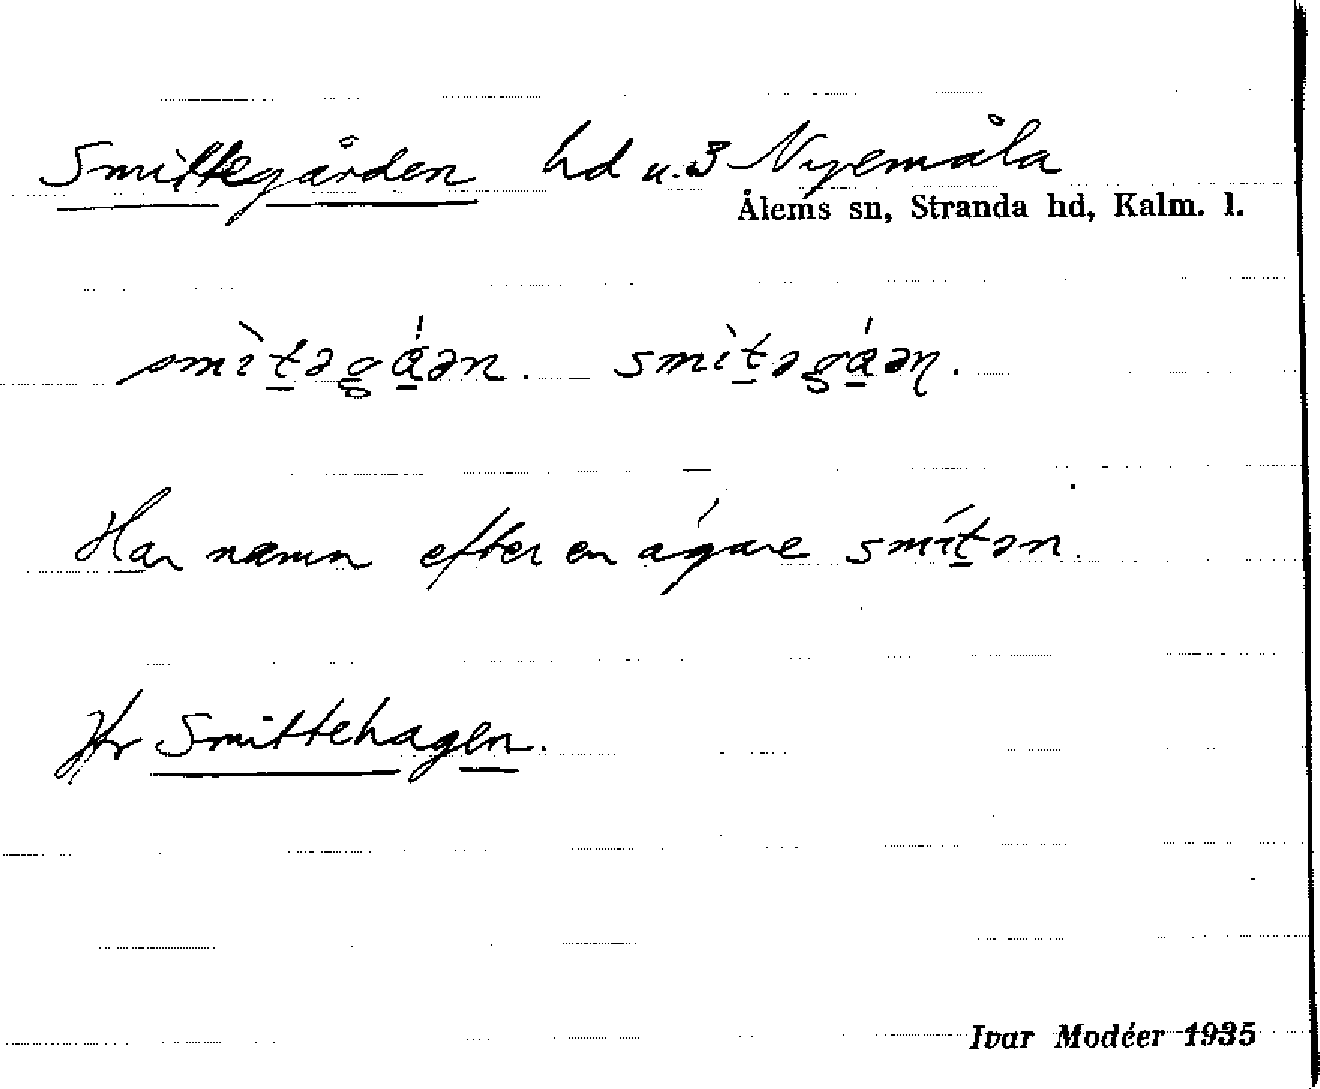 Smittegården hd u. 3 Nyemåla
Ålems sn, Stranda hd, Kalm. l.
smìt̲əg̲á̲ən. smìt̲əgá̲əɳ.
Har namn efter en ägare smít̲ən.
Jfr Smittehagen.
Ivar Modéer 1935